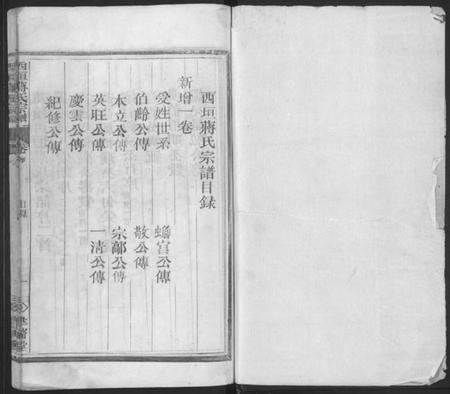 西垣蔣氏宗譜目錄
新增一卷
受姓世系 蟾宮公傳
伯齡公傳 敬公傳
本立公傳 宗鄗公傳
英旺公傳 一清公傳
慶雲公傳
紀修公傳
西垣蔣氏宗譜
目錄
一